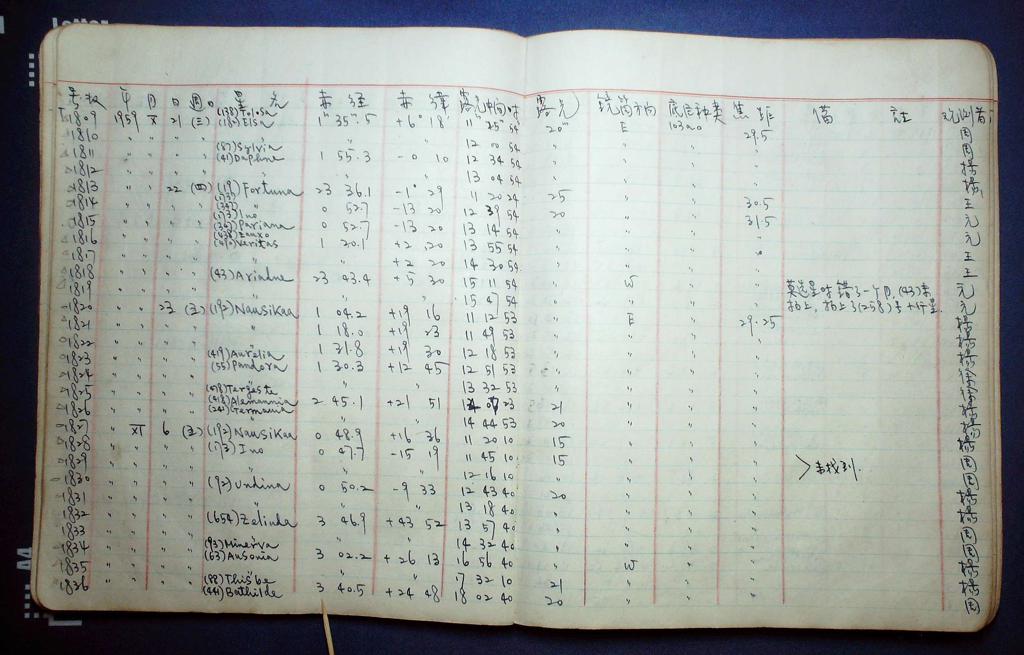 号数 年 月 日 週 星名 赤经 赤纬 露光时间 露光 镜筒方向 底片种类 焦距 备註 观测者
1809 1959 X 21 (三) (138) Tolosa (182) Elsa 1 35.5 +6 18 11 25 54 20 E 103aO 29.5 周
1810 " " " " " 12 00 54 " " " " 周
1811 " " " " (87) Sylvia (41) Daphne 1 55.3 -0 10 12 34 54 " " " " 揚
1812 " " " " " 13 04 54 " " " " 揚
1813 " " 22 (四) (19) Fortuna 23 36.1 -1 29 11 20 24 25 " " 30.5 王
1814 " " " " 0 52.7 -13 20 12 39 54 20 " " 31.5 元
1815 " " " " (173) Ino 0 52.7 -13 20 13 14 54 " " " " 元
1816 " " " " (347) Pariana (490) Veritas 1 20.1 +2 20 13 55 54 " " " " 王
1817 " " " " " +2 20 14 30 54 " " " 王
1818 " " " " (43) Ariadne 23 43.4 +5 30 15 11 54 " W " " 元
1819 " " " " " 15 47 54 " " " "
1820 " " 23 (五) (192) Nausikaa 1 04.2 +19 16 11 12 53 " E " 29.25 揚
1821 " " " " " 1 18.0 +19 23 11 49 53 " " " " 揚
1822 " " " " 1 31.8 +19 30 12 18 53 " " " "
1823 " " " " (419) Aurelia (55) Pandora 1 30.3 +12 45 12 51 53 " " " "
1824 " " " " " 13 32 53 " " " "
1825 " " " " (478) Tergeste (418) Alemannia (241) Germania 2 45.1 +21 51 23 21 " " " 揚
1826 " " " " " 14 44 53 20 " " " 揚
1827 " XI 6 (五) (192) Nausikaa 0 48.9 +16 36 11 20 10 15 " " " 揚
1828 " " " " (173) Ino 0 47.7 -15 19 11 45 10 15 " " " 未找到. 周
1829 " " " " " 12 16 10 " " " 周
1830 " " " " (92) Undina 0 50.2 -9 33 12 43 40 20 " " " 揚
1831 " " " " " 13 18 40 " " " " 揚
1832 " " " " (654) Zelinda 3 46.9 +43 52 13 57 40 " " " " 周
1833 " " " " " 14 32 40 " " " " 周
1834 " " " " (93) Minerva (63) Ausonia 3 02.2 +26 13 16 56 40 " W " " 揚
1835 " " " " " 17 32 10 21 " " " 揚
1836 " " " " (88) Thisbe (441) Bathilde 3 40.5 +24 48 18 02 40 20 " " " 周
星时错了一个月, (43)未
拍上, 拍上了(1258)号小行星.